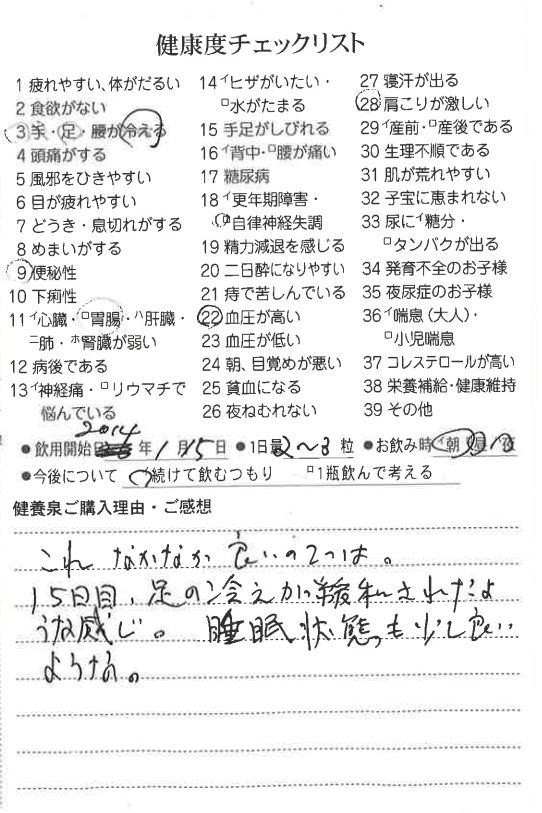 健康度チェックリスト
1 疲れやすい、体がだるい
2 食欲がない
3 手・足・腰が冷える
4 頭痛がする
5 風邪をひきやすい
6 目が疲れやすい
7 どうき・息切れがする
8 めまいがする
9 便秘性
10 下痢性
11 ｲ心臓・ﾛ胃腸・ﾊ肝臓・
ﾆ肺・ﾎ腎臓が弱い
12 病後である
13 ｲ神経痛・ﾛリウマチで
悩んでいる
14 ｲヒザがいたい・
ﾛ水がたまる
15 手足がしびれる
16 ｲ背中・ﾛ腰が痛い
17 糖尿病
18 ｲ更年期障害・
ﾛ自律神経失調
19 精力減退を感じる
20 二日酔になりやすい
21 痔で苦しんでいる
22 血圧が高い
23 血圧が低い
24 朝、目覚めが悪い
25 貧血になる
26 夜ねむれない
27 寝汗が出る
28 肩こりが激しい
29 ｲ産前・ﾛ産後である
30 生理不順である
31 肌が荒れやすい
32 子宝に恵まれない
33 尿にｲ糖分・
ﾛタンパクが出る
34 発育不全のお子様
35 夜尿症のお子様
36 ｲ喘息（大人）・
ﾛ小児喘息
37 コレステロールが高い
38 栄養補給・健康維持
39 その他
●飲用開始日 2014 年 1 月 15 日 ●1日量 2〜3 粒 ●お飲み時 ｲ朝 昼 夜
●今後について ｲ続けて飲むつもり ﾛ1瓶飲んで考える
健養泉ご購入理由・ご感想
これ なかなか 良いのでは。
15日目、足の冷えが緩和されたよ
うな感じ。 睡眠状態も少し良い
ような。